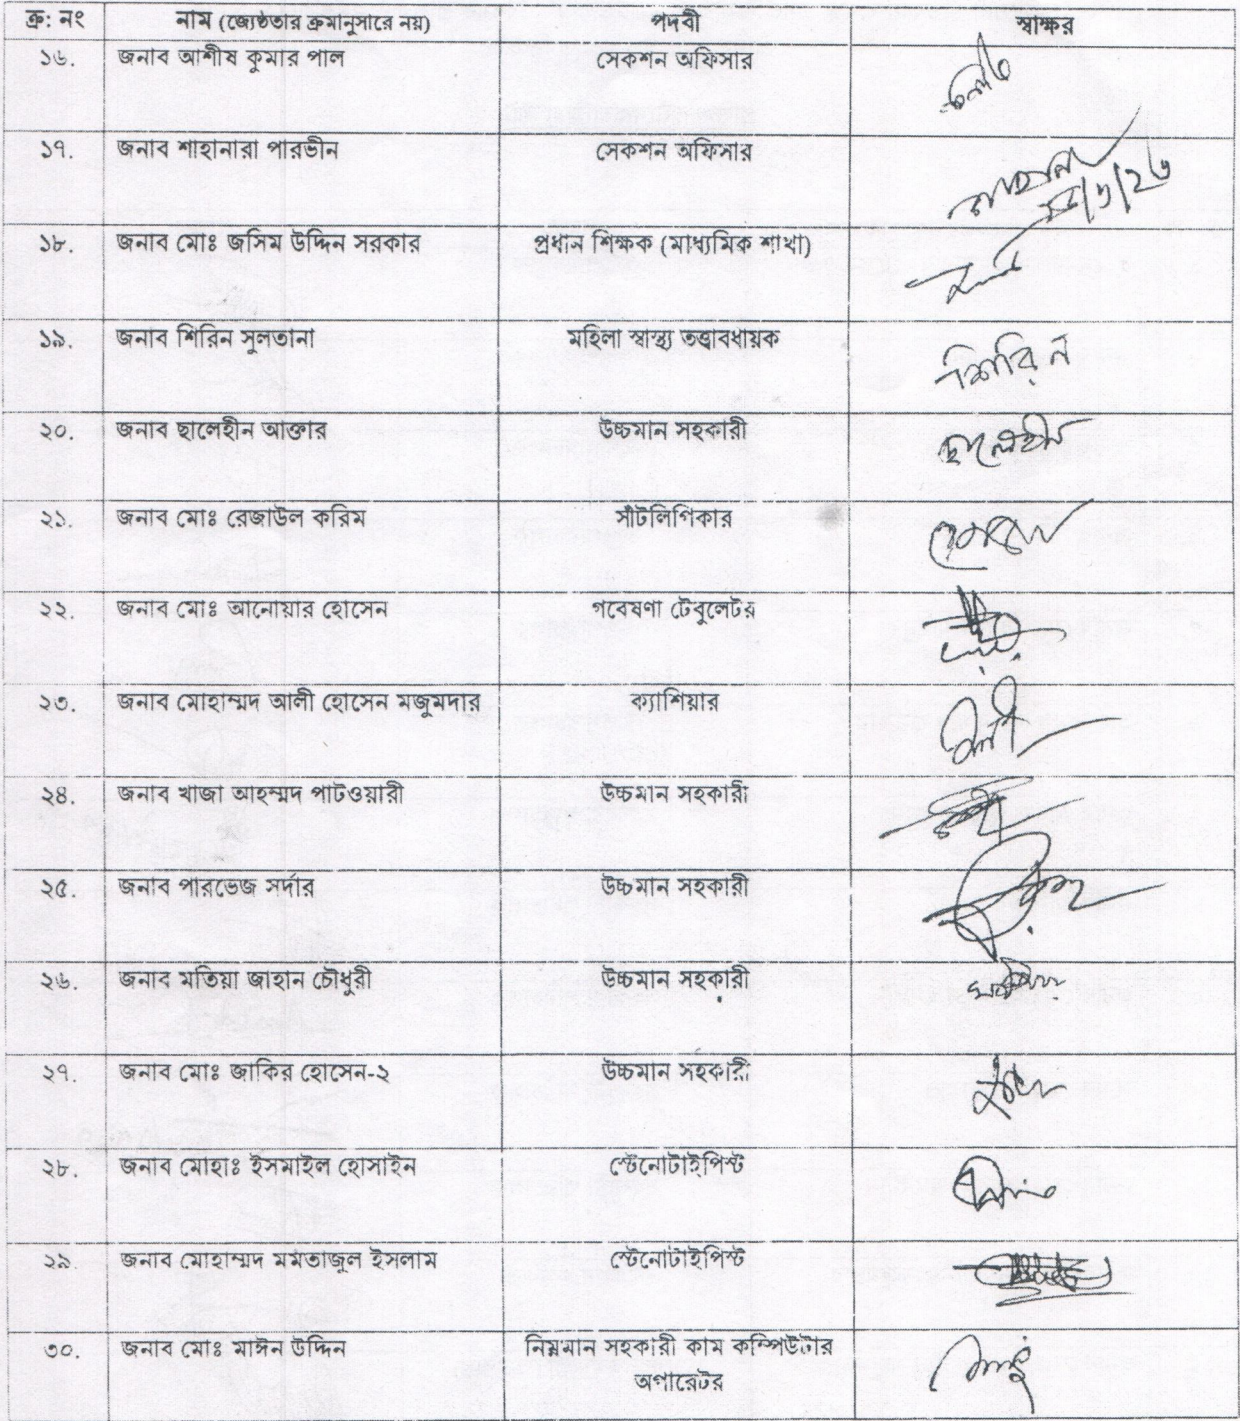 ক্র: নং নাম (জ্যেষ্ঠতার ক্রমানুসারে নয়) পদবী স্বাক্ষর
১৬. জনাব আশীষ কুমার পাল সেকশন অফিসার
১৭. জনাব শাহানারা পারভীন সেকশন অফিসার
১৮. জনাব মোঃ জসিম উদ্দিন সরকার প্রধান শিক্ষক (মাধ্যমিক শাখা)
১৯. জনাব শিরিন সুলতানা মহিলা স্বাস্থ্য তত্ত্বাবধায়ক শিরিন
২০. জনাব ছালেহীন আক্তার উচ্চমান সহকারী ছালেহীন
২১. জনাব মোঃ রেজাউল করিম সাঁটলিপিকার
২২. জনাব মোঃ আনোয়ার হোসেন গবেষণা টেবুলেটর
২৩. জনাব মোহাম্মদ আলী হোসেন মজুমদার ক্যাশিয়ার
২৪. জনাব খাজা আহম্মদ পাটওয়ারী উচ্চমান সহকারী
২৫. জনাব পারভেজ সর্দার উচ্চমান সহকারী
২৬. জনাব মতিয়া জাহান চৌধুরী উচ্চমান সহকারী
২৭. জনাব মোঃ জাকির হোসেন-২ উচ্চমান সহকারী
২৮. জনাব মোহাঃ ইসমাইল হোসাইন স্টেনোটাইপিস্ট
২৯. জনাব মোহাম্মদ মমতাজুল ইসলাম স্টেনোটাইপিস্ট
৩০. জনাব মোঃ মাঈন উদ্দিন নিম্নমান সহকারী কাম কম্পিউটার
অপারেটর